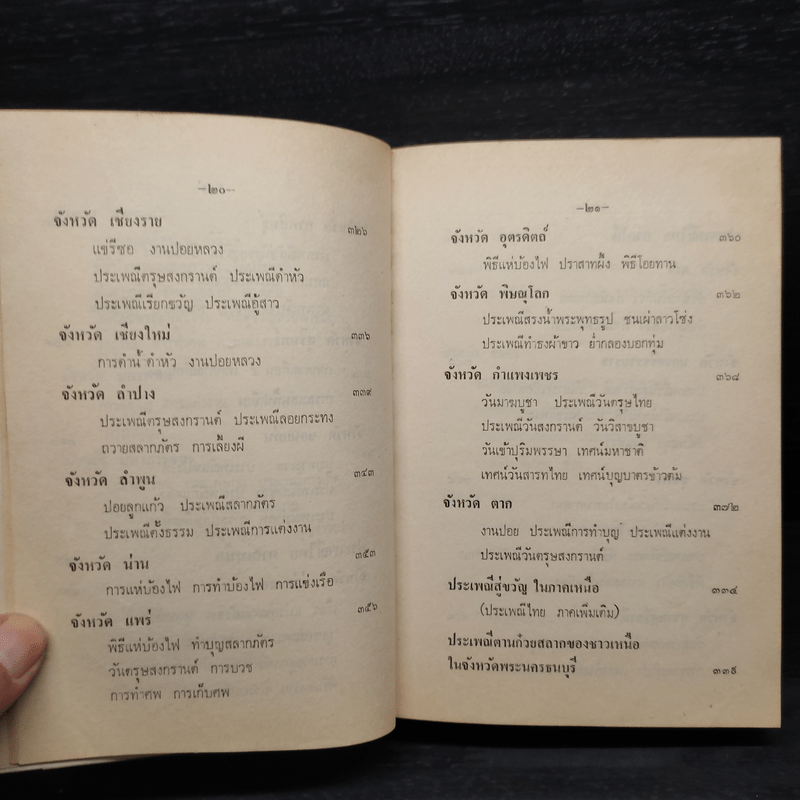 -๒๐-
จังหวัด เชียงราย ๓๒๖
แข่รีซอ งานปอยหลวง
ประเพณีตรุษสงกรานต์ ประเพณีดำหัว
ประเพณีเรียกขวัญ ประเพณีอู้สาว
จังหวัด เชียงใหม่ ๓๓๖
การดำน้ำ ดำหัว งานปอยหลวง
จังหวัด ลำปาง ๓๓๙
ประเพณีตรุษสงกรานต์ ประเพณีลอยกระทง
ถวายสลากภัตร การเลี้ยงผี
จังหวัด ลำพูน ๓๔๓
ปอยลูกแก้ว ประเพณีสลากภัตร
ประเพณีตั้งธรรม ประเพณีการแต่งงาน
จังหวัด น่าน ๓๕๓
การแห่บ้องไฟ การทำบ้องไฟ การแข่งเรือ
จังหวัด แพร่ ๓๕๖
พิธีแห่บ้องไฟ ทำบุญสลากภัตร
วันตรุษสงกรานต์ การบวช
การทำศพ การเก็บศพ
-๒๑-
จังหวัด อุตรดิตถ์ ๓๖๐
พิธีแห่บ้องไฟ ปราสาทผึ้ง พิธีโอยทาน
จังหวัด พิษณุโลก ๓๖๒
ประเพณีสรงน้ำพระพุทธรูป ชนเผ่าลาวโซ่ง
ประเพณีทำธงผ้าขาว ย่ำกลองบอกทุ่ม
จังหวัด กำแพงเพชร ๓๖๘
วันมาฆบูชา ประเพณีวันตรุษไทย
ประเพณีวันสงกรานต์ วันวิสาขบูชา
วันเข้าปุริมพรรษา เทศน์มหาชาติ
เทศน์วันสารทไทย เทศน์บุญบาตรข้าวต้ม
จังหวัด ตาก ๓๗๒
งานปอย ประเพณีการทำบุญ ประเพณีแต่งงาน
ประเพณีวันตรุษสงกรานต์
ประเพณีสู่ขวัญ ในภาคเหนือ ๓๓๔
(ประเพณีไทย ภาคเพิ่มเติม)
ประเพณีตานก๋วยสลากของชาวเหนือ
ในจังหวัดพระนครธนบุรี ๓๓๙